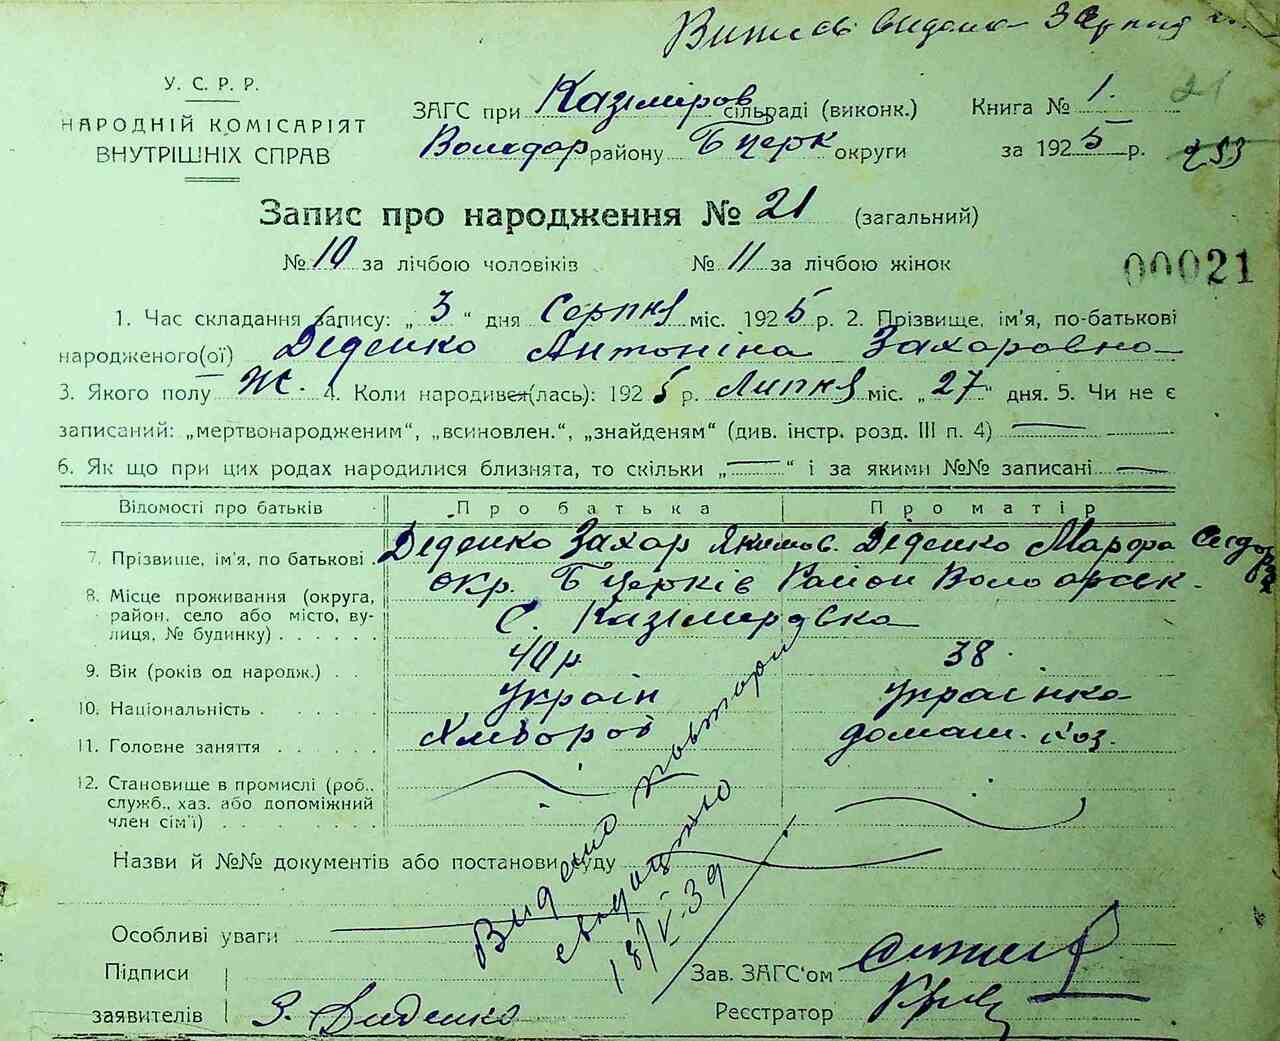 Витяг видано 3 Серпня
У. С. Р. Р.
НАРОДНІЙ КОМІСАРІЯТ
ВНУТРІШНІХ СПРАВ
ЗАГС при Казіміров сільраді (виконк.) Книга № 1. 21
Володар району Бцерк округи за 1925 р. 253
Запис про народження № 21 (загальний)
№ 10 за лічбою чоловіків № 11 за лічбою жінок
00021
1. Час складання запису: „3“ дня Серпня міс. 1925 р. 2. Прізвище, ім'я, по-батькові
народженого(ої) Діденко Антоніна Захаровна
3. Якого полу Ж. 4. Коли народився(лась): 1925 р. Липня міс. „27“ дня. 5. Чи не є
записаний: „мертвонародженим“, „всиновлен.“, „знайденям“ (див. інстр. розд. III п. 4) —
6. Як що при цих родах народилися близнята, то скільки „—“ і за якими №№ записані —
Відомості про батьків Про батька Про матір
7. Прізвище, ім'я, по батькові Діденко Захар Якимов. Діденко Марфа Сидор
8. Місце проживання (округа, окр. Бцерків Район Володарськ.
район, село або місто, ву- С. Казіміровка
лиця, № будинку)
9. Вік (років од народж.) 40 р 38
10. Національність Україн Українка
11. Головне заняття Хлібороб домаш. хоз.
12. Становище в промислі (роб.,
служб., хаз. або допоміжний
член сім'ї)
Назви й №№ документів або постанови суду
Видано повторн
свидоцтво
18/V-39
Особливі уваги
Підписи Зав. ЗАГС'ом
заявителів З. Диденко Реєстратор